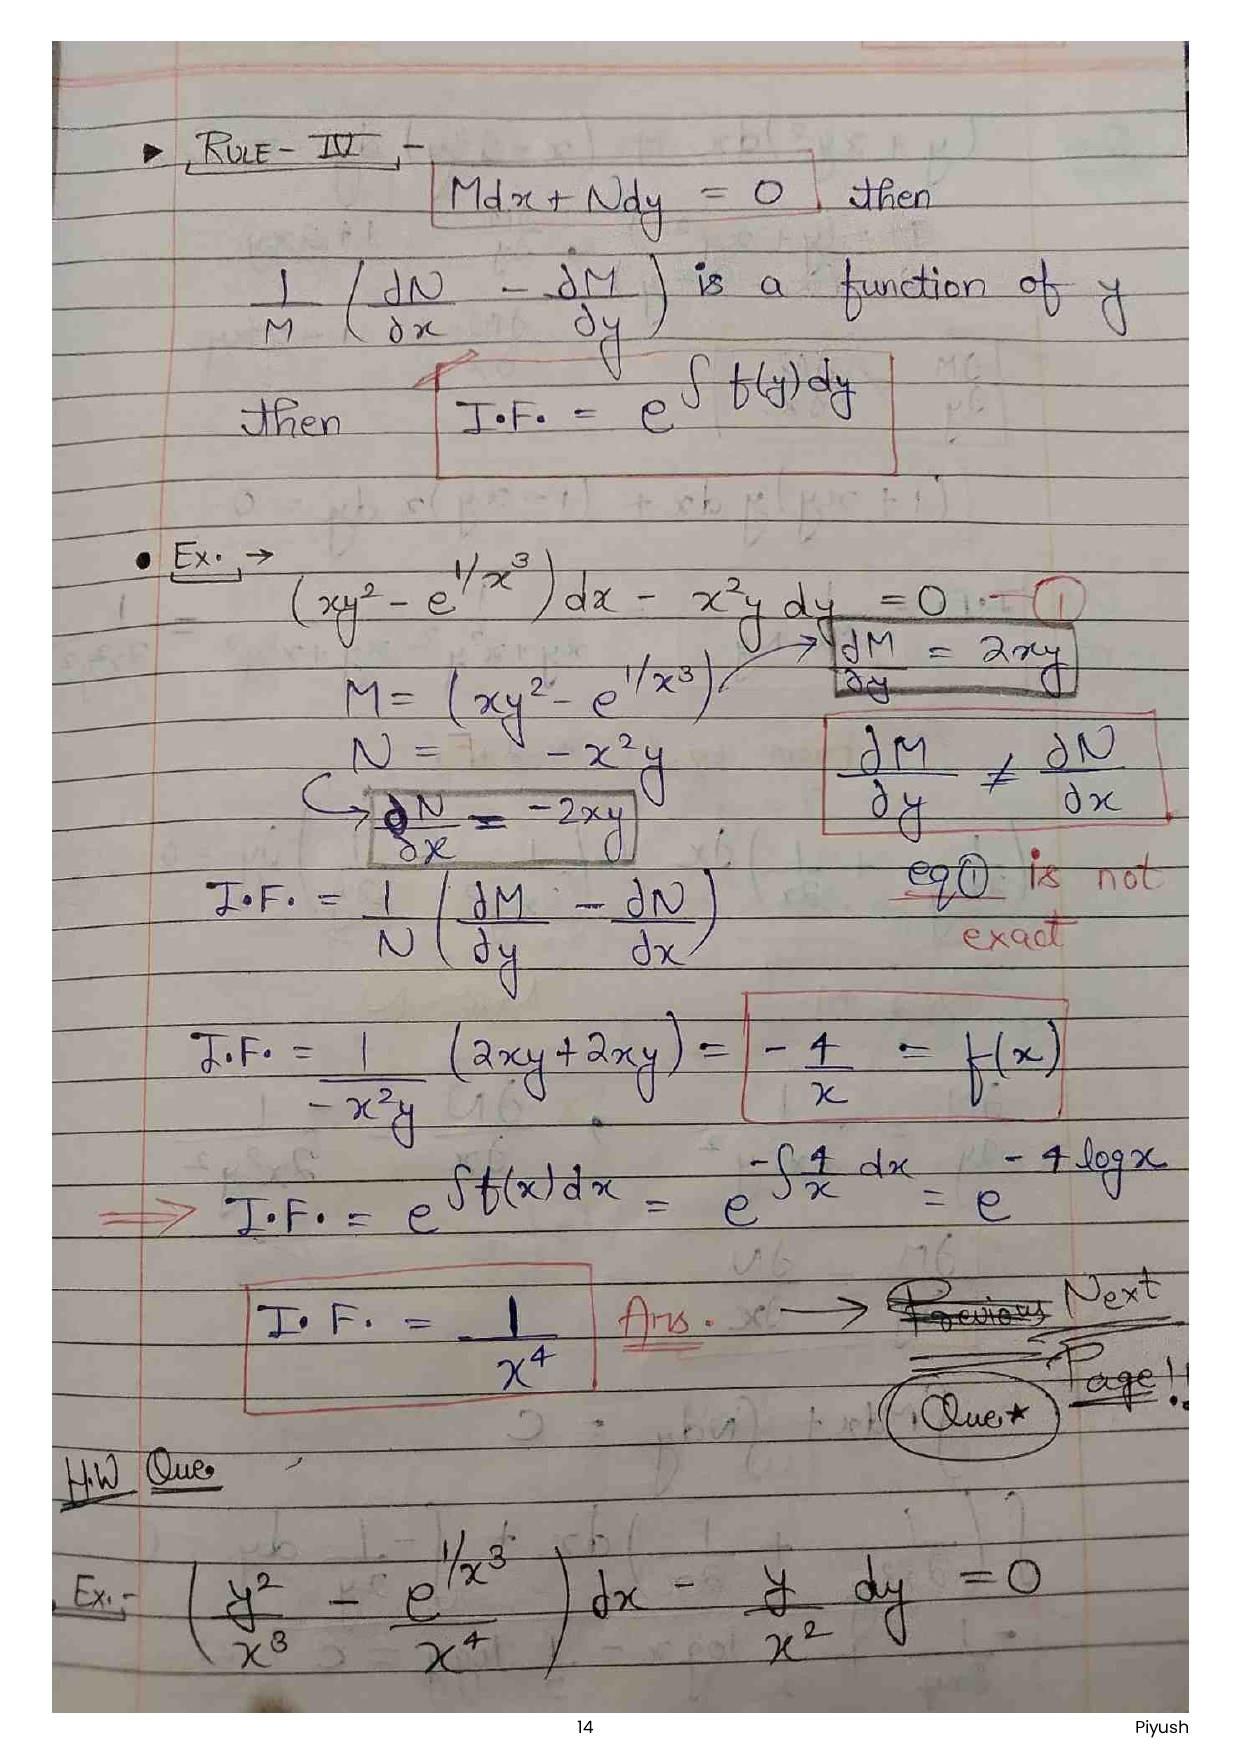 ▶ RULE - IV -
Mdx + Ndy = 0 then
1/M (∂N/∂x - ∂M/∂y) is a function of y
then I.F. = e^∫f(y)dy
• Ex. →
(xy² - e^1/x³)dx - x²y dy = 0 - ①
∂M/∂y = 2xy
M = (xy² - e^1/x³)
N = - x²y
∂M/∂y ≠ ∂N/∂x
∂N/∂x = -2xy
eq ① is not
exact
I.F. = 1/N (∂M/∂y - ∂N/∂x)
I.F. = 1/-x²y (2xy + 2xy) = -4/x = f(x)
⇒ I.F. = e^∫f(x)dx = e^-∫4/x dx = e^-4 log x
I.F. = 1/x⁴ Ans. → Previous Next
Page!!
Que★
H.W Que.
Ex.- (y²/x³ - e^1/x³/x⁴) dx - y/x² dy = 0
14
Piyush